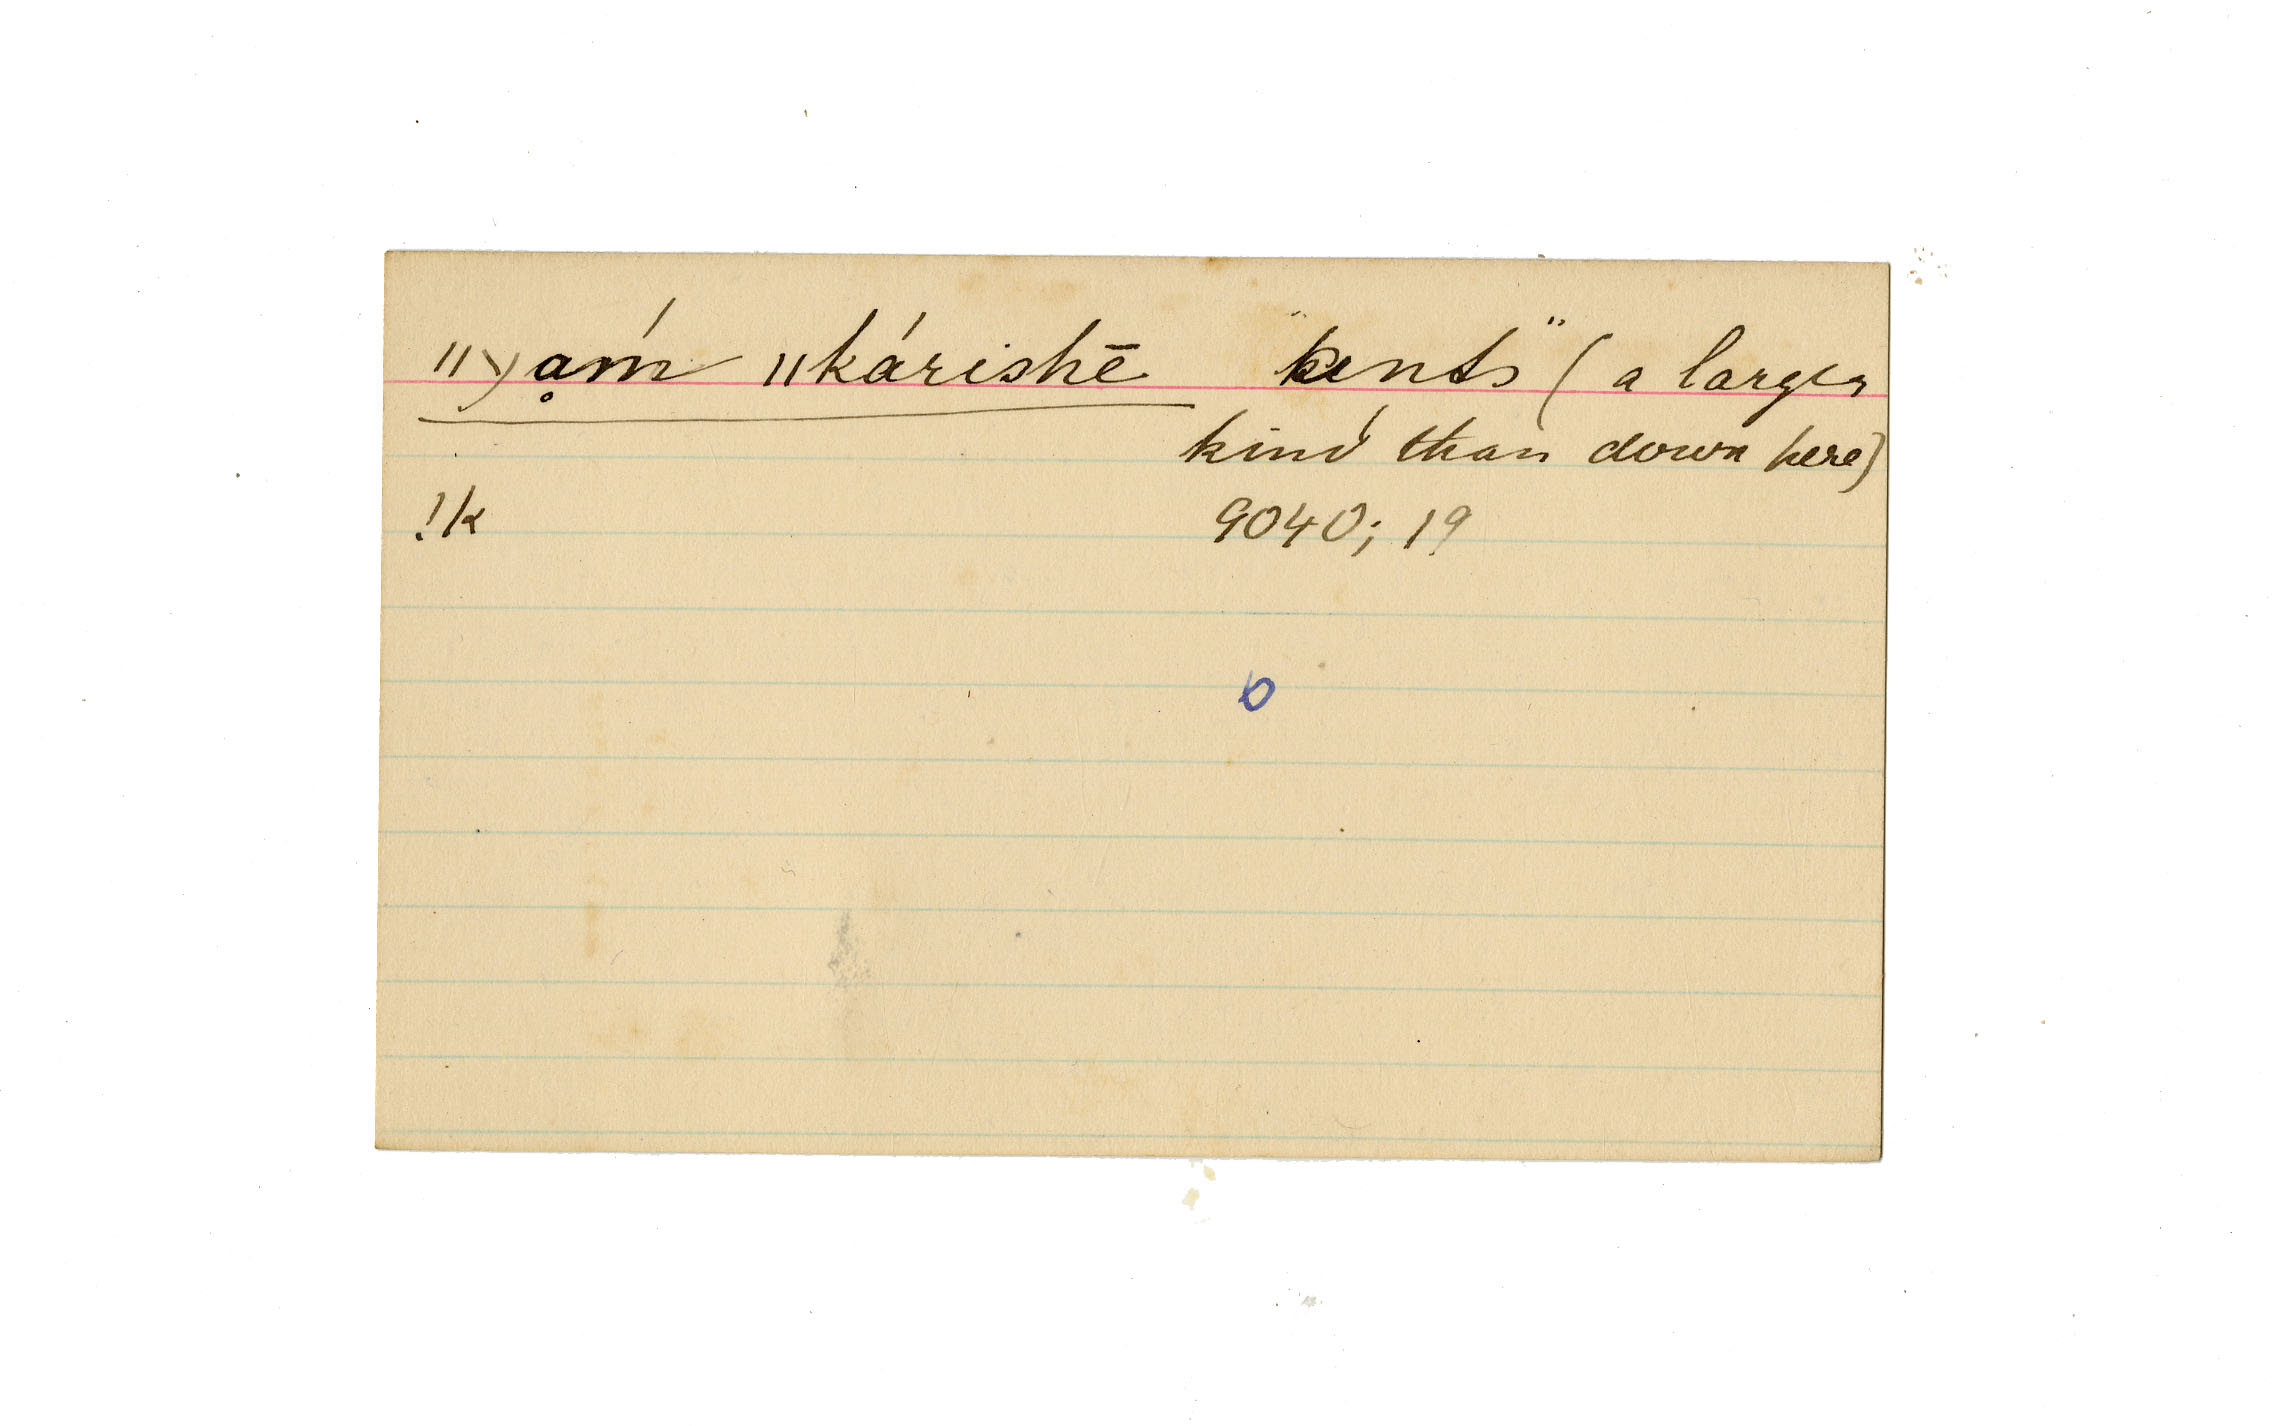 ‖χḁḿ ‖kárishē "kents" (a larger
kind than down here)
!k 9040; 19
b